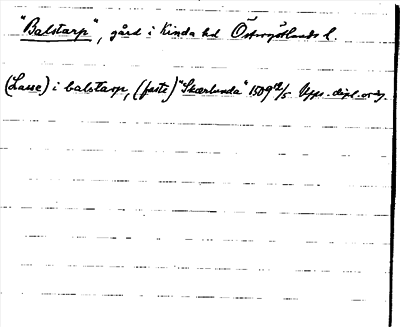 "Balstarp", gård i Kinda hd Östergötlands l.
(Lasse) i balstarp, (faste) "Skærlunda" 1509 Upps. dipl. orig.